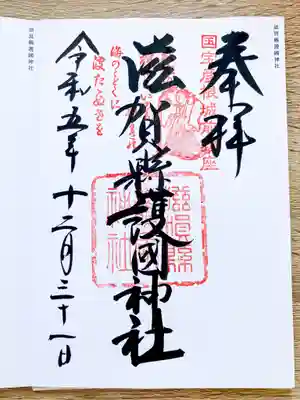 滋賀縣護國神社
奉拝
国宝彦根城
滋賀縣護國神社
滋賀縣
神社
令和五年十二月三十一日
滋賀縣護國神社